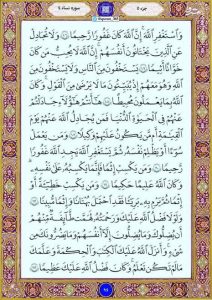 جزء ٥ سوره نساء ٤
وَاسْتَغْفِرِ اللَّهَ إِنَّ اللَّهَ كَانَ غَفُورًا رَحِيمًا وَلَا تُجَادِلْ
عَنِ الَّذِينَ يَخْتَانُونَ أَنْفُسَهُمْ إِنَّ اللَّهَ لَا يُحِبُّ مَنْ كَانَ
خَوَّانًا أَثِيمًا يَسْتَخْفُونَ مِنَ النَّاسِ وَلَا يَسْتَخْفُونَ مِنَ
اللَّهِ وَهُوَ مَعَهُمْ إِذْ يُبَيِّتُونَ مَا لَا يَرْضَىٰ مِنَ الْقَوْلِ وَكَانَ
اللَّهُ بِمَا يَعْمَلُونَ مُحِيطًا هَا أَنْتُمْ هَٰؤُلَاءِ جَادَلْتُمْ
عَنْهُمْ فِي الْحَيَاةِ الدُّنْيَا فَمَنْ يُجَادِلُ اللَّهَ عَنْهُمْ يَوْمَ
الْقِيَامَةِ أَمْ مَنْ يَكُونُ عَلَيْهِمْ وَكِيلًا وَمَنْ يَعْمَلْ
سُوءًا أَوْ يَظْلِمْ نَفْسَهُ ثُمَّ يَسْتَغْفِرِ اللَّهَ يَجِدِ اللَّهَ غَفُورًا
رَحِيمًا وَمَنْ يَكْسِبْ إِثْمًا فَإِنَّمَا يَكْسِبُهُ عَلَىٰ نَفْسِهِ
وَكَانَ اللَّهُ عَلِيمًا حَكِيمًا وَمَنْ يَكْسِبْ خَطِيئَةً أَوْ
إِثْمًا ثُمَّ يَرْمِ بِهِ بَرِيئًا فَقَدِ احْتَمَلَ بُهْتَانًا وَإِثْمًا مُبِينًا
وَلَوْلَا فَضْلُ اللَّهِ عَلَيْكَ وَرَحْمَتُهُ لَهَمَّتْ طَائِفَةٌ مِنْهُمْ
أَنْ يُضِلُّوكَ وَمَا يُضِلُّونَ إِلَّا أَنْفُسَهُمْ وَمَا يَضُرُّونَكَ مِنْ
شَيْءٍ وَأَنْزَلَ اللَّهُ عَلَيْكَ الْكِتَابَ وَالْحِكْمَةَ وَعَلَّمَكَ
مَا لَمْ تَكُنْ تَعْلَمُ وَكَانَ فَضْلُ اللَّهِ عَلَيْكَ عَظِيمًا